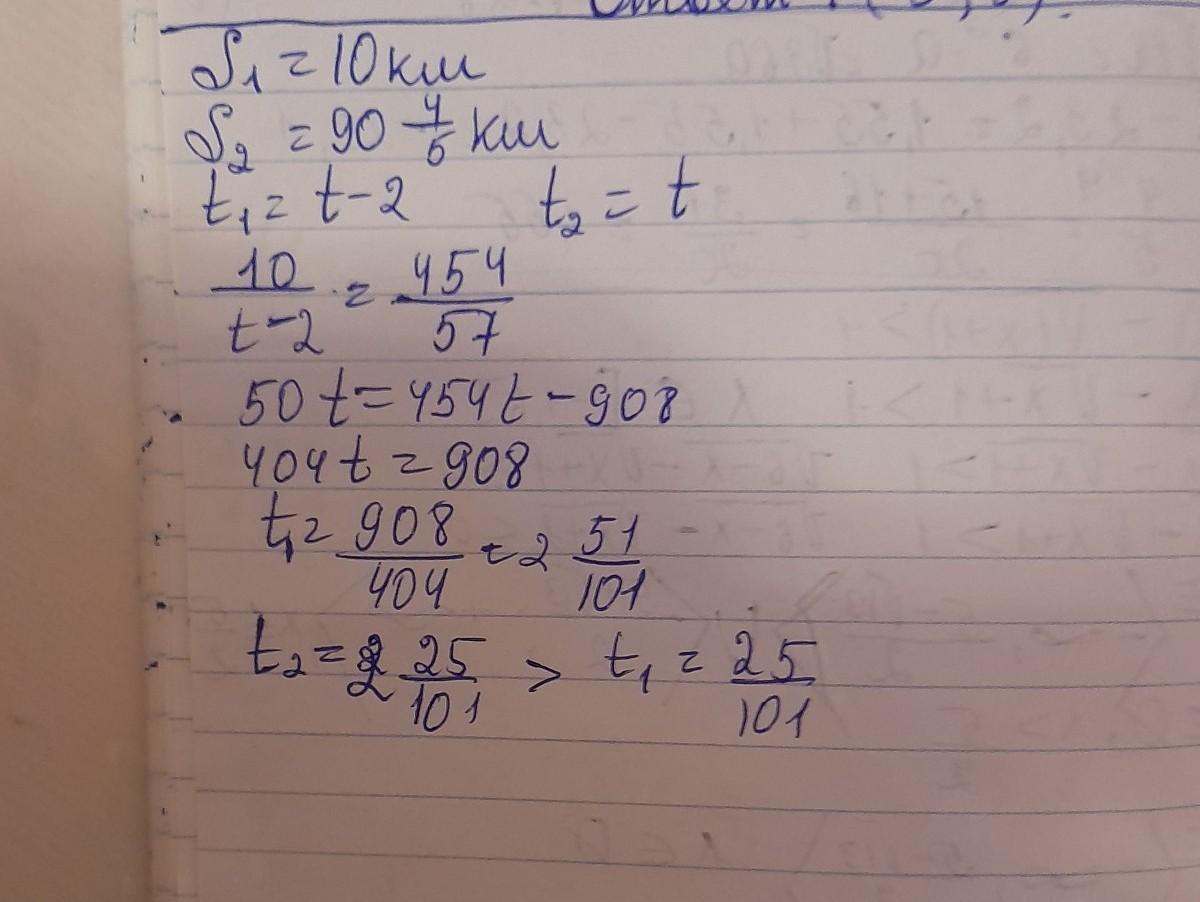 S₁ = 10 км
S₂ = 90 4/5 км
t₁ = t - 2 t₂ = t
10/(t - 2) = 454/57
50 t = 454t - 908
404 t = 908
t₁ = 908/404 = 2 51/101
t₂ = 2 25/101 > t₁ = 25/101